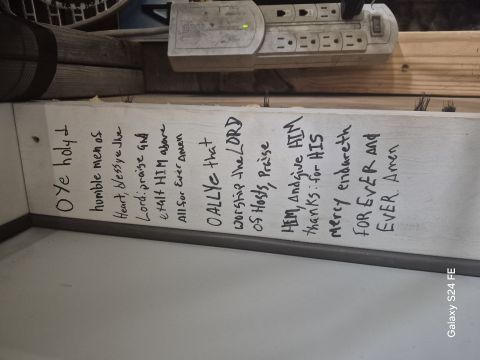 O Ye holy &
humble men os
Heart, bless ye the
Lord: praise and
exalt HIM above
All for Ever Amen
O ALL Ye that
worship the LORD
OS Hosts, Praise
HIM, And give HIM
thanks: for HIS
mercy endureth
FOR EVER AND
EVER. Amen
Galaxy S24 FE